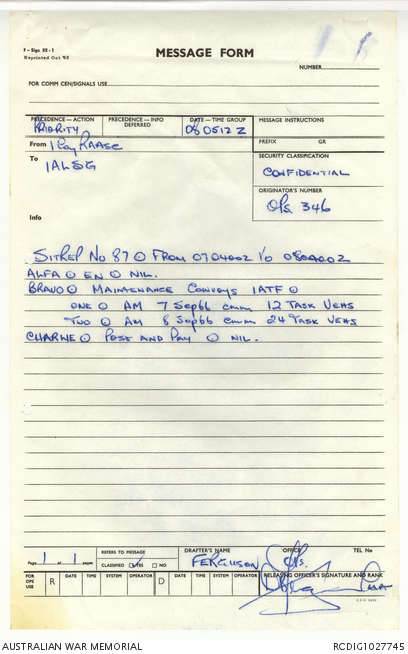 F-Sigs 32-1
Reprinted Oct '65
MESSAGE FORM
NUMBER
FOR COMM CEN/SIGNALS USE
PRECEDENCE—ACTION PRECEDENCE—INFO DEFERRED DATE—TIME GROUP MESSAGE INSTRUCTIONS
PRIORITY 080512Z
PREFIX GR
From 1 Coy RAASC
To 1ALSG
SECURITY CLASSIFICATION
CONFIDENTIAL
ORIGINATOR'S NUMBER
Ops 346
Info
SITREP No 87 ⊙ FROM 070400Z to 080400Z
ALFA ⊙ EN ⊙ NIL.
BRAVO ⊙ MAINTENANCE CONVOYS 1ATF ⊙
ONE ⊙ AM 7 Sep66 cmm 12 TASK VEHS
TWO ⊙ AM 8 Sep66 cmm 24 TASK VEHS
CHARLIE ⊙ POSE AND PAY ⊙ NIL.
Page 1 of 1 pages
REFERS TO MESSAGE
CLASSIFIED YES NO
DRAFTER'S NAME OFFICE TEL No
FERGUSON Ops.
FOR OPS USE R DATE TIME SYSTEM OPERATOR D DATE TIME SYSTEM OPERATOR RELEASING OFFICER'S SIGNATURE AND RANK
AUSTRALIAN WAR MEMORIAL RCDIG1027745